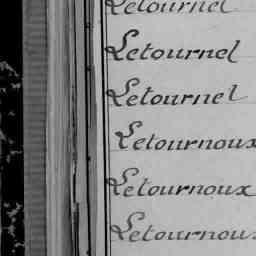 Letournel
Letournel
Letournel
Letournoux
Letournoux
Letournoux